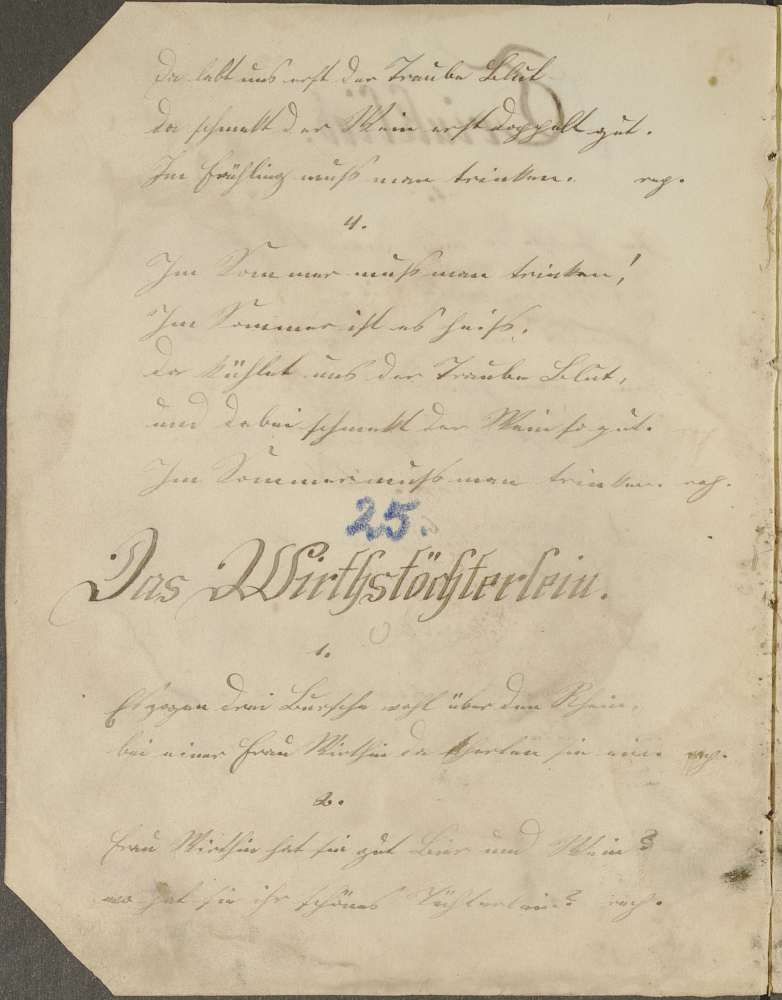 Da labt uns erst der Traube Blut
da schmekt der Wein erst doppelt gut.
Im Frühling muß man trinken. rep.
4.
Im Sommer muß man trinken!
Im Sommer ist es heiß.
da kühlet uns der Traube Blut,
und dabei schmekt der Wein so gut.
Im Sommer muß man trinken. rep.
25.
Das Wirthstöchterlein.
1.
Es zogen drei Bursche wohl über den Rhein,
bei einer Frau Wirthin da kherten sie ein. rep.
2.
Frau Wirthin hat sie gut Bier und Wein?
wo hat sie ihr schönes Töchterlein? rep.